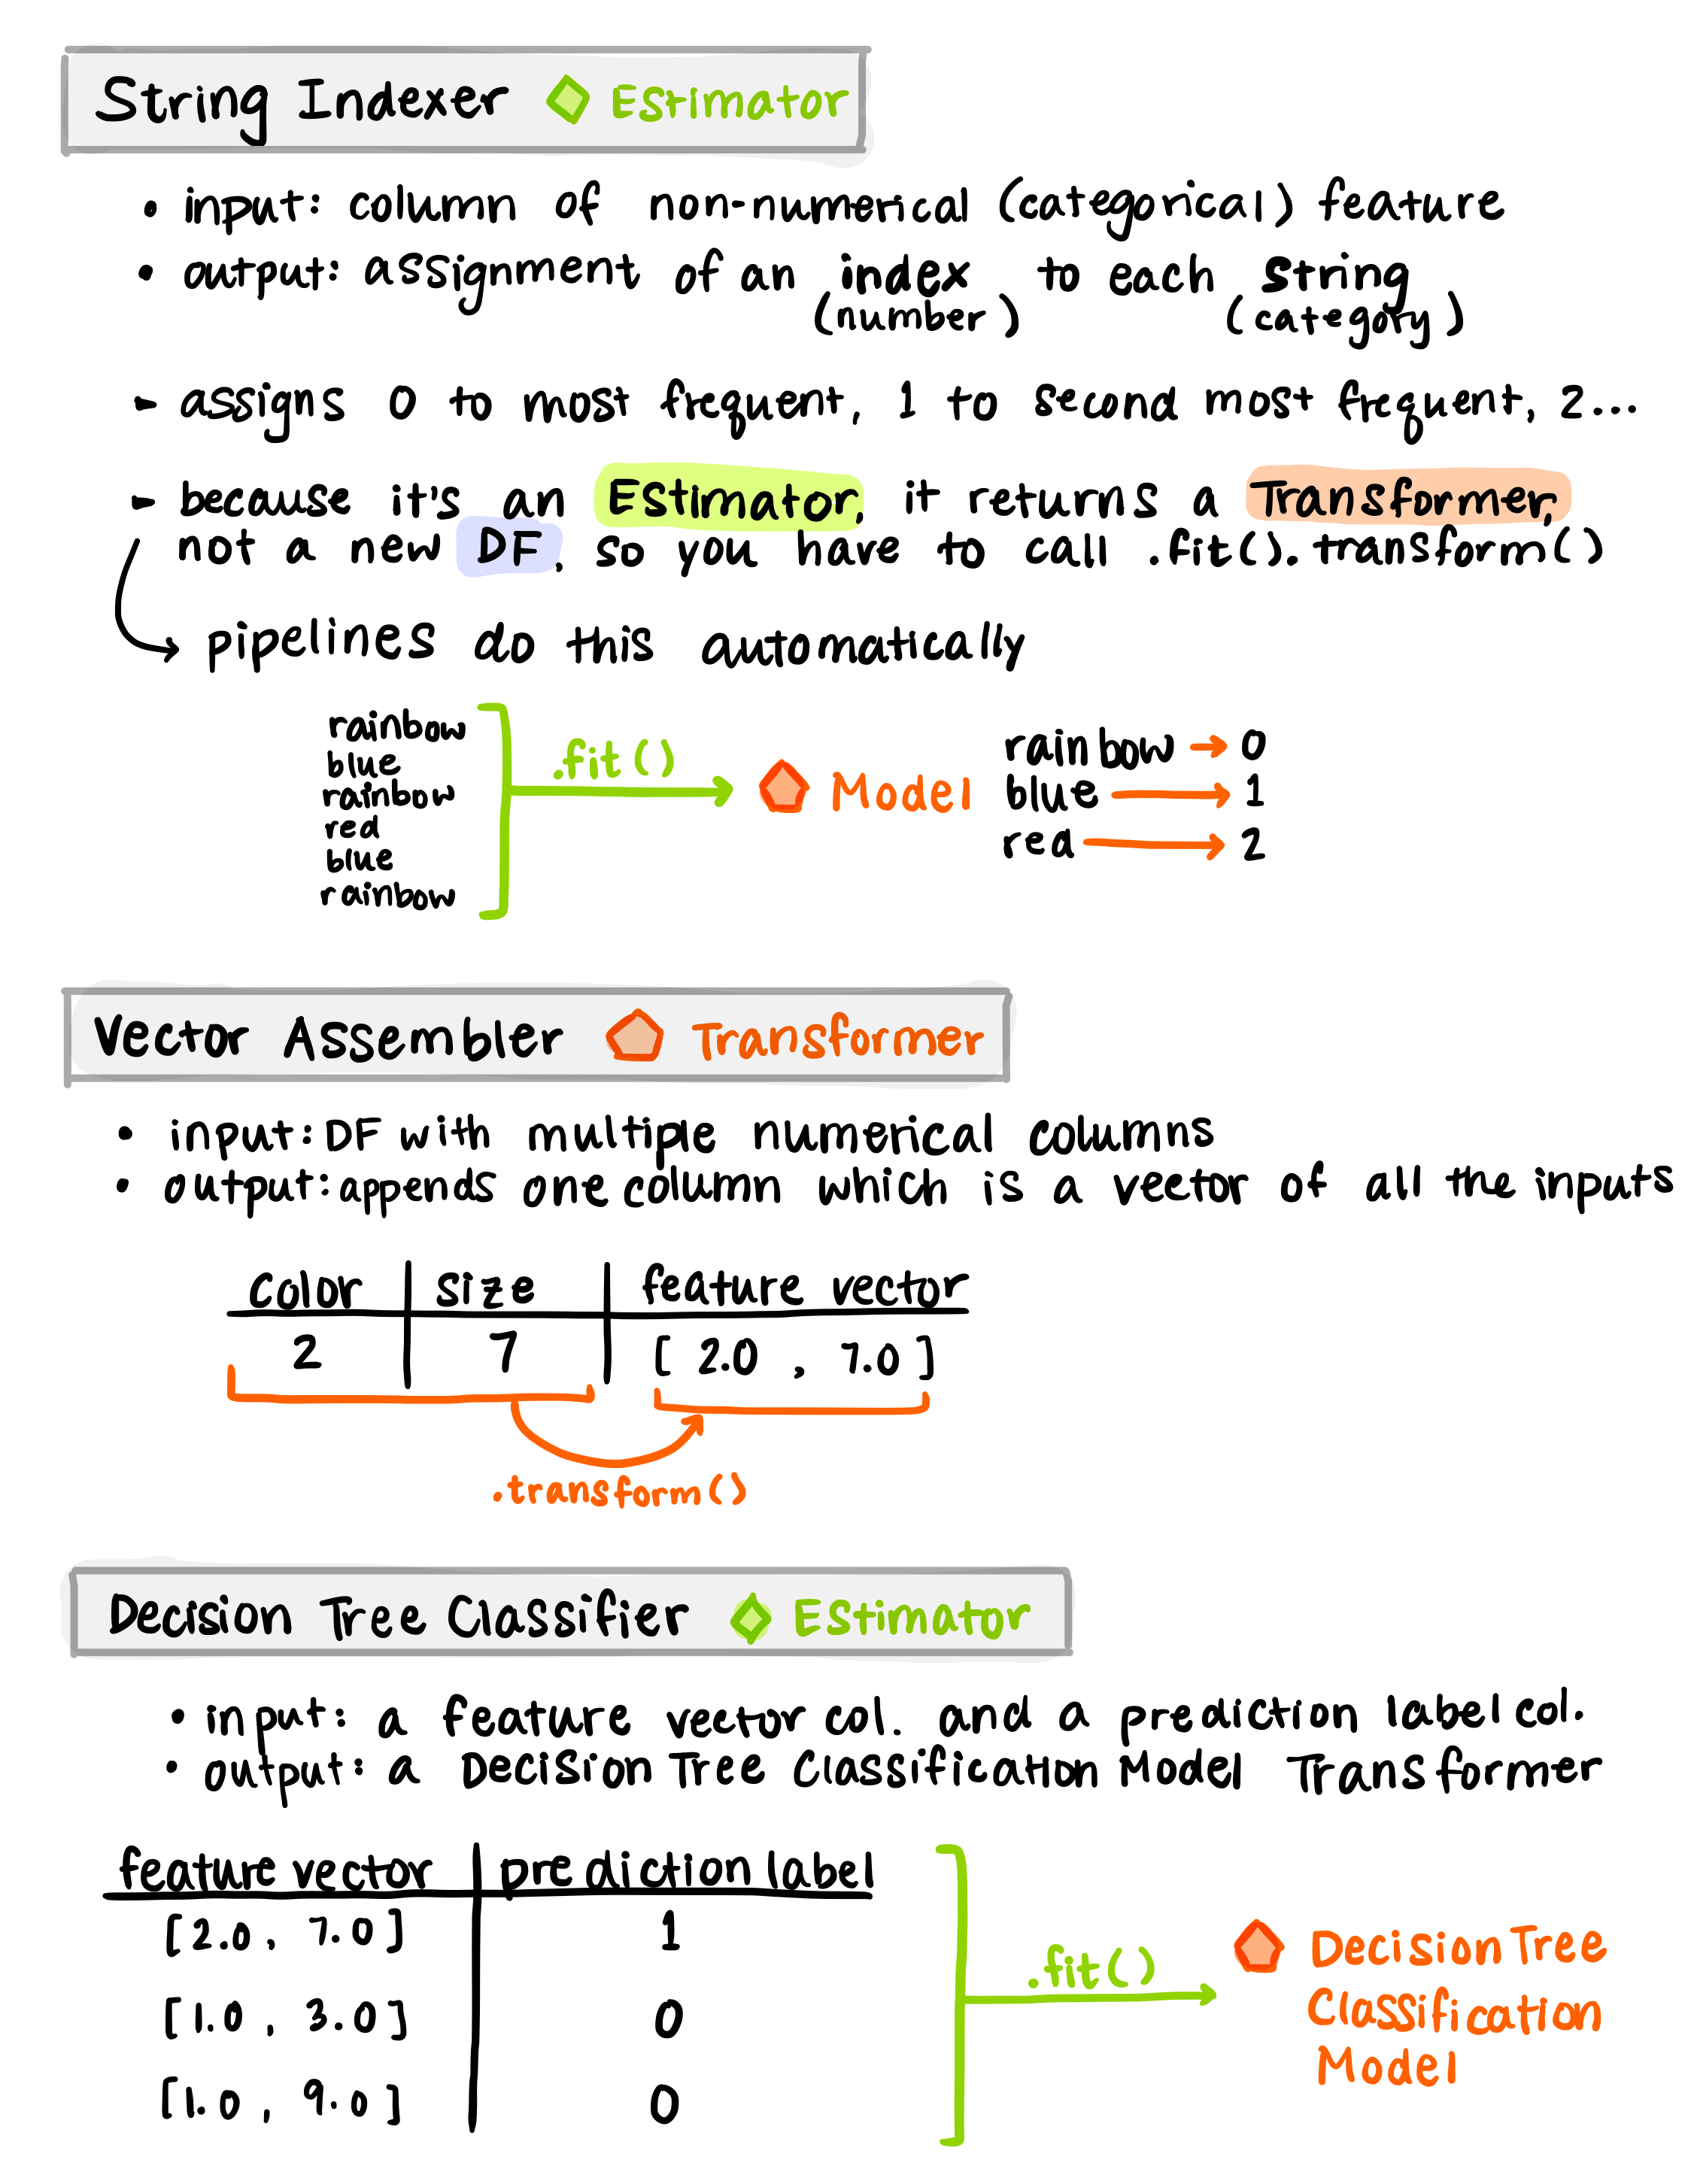 String Indexer Estimator
• input: column of non-numerical (categorical) feature
• output: assignment of an index to each string
(number) (category)
- assigns 0 to most frequent, 1 to second most frequent, 2...
- because it's an Estimator, it returns a Transformer,
not a new DF, so you have to call .fit().transform()
→ pipelines do this automatically
rainbow
blue
rainbow
red
blue
rainbow
.fit()
Model
rainbow → 0
blue → 1
red → 2
Vector Assembler Transformer
• input: DF with multiple numerical columns
• output: appends one column which is a vector of all the inputs
color size feature vector
2 7 [ 2.0 , 7.0 ]
.transform()
Decision Tree Classifier Estimator
• input: a feature vector col. and a prediction label col.
• output: a Decision Tree Classification Model Transformer
feature vector prediction label
[2.0 , 7.0] 1
[1.0 , 3.0] 0
[1.0 , 9.0] 0
.fit()
Decision Tree
Classification
Model